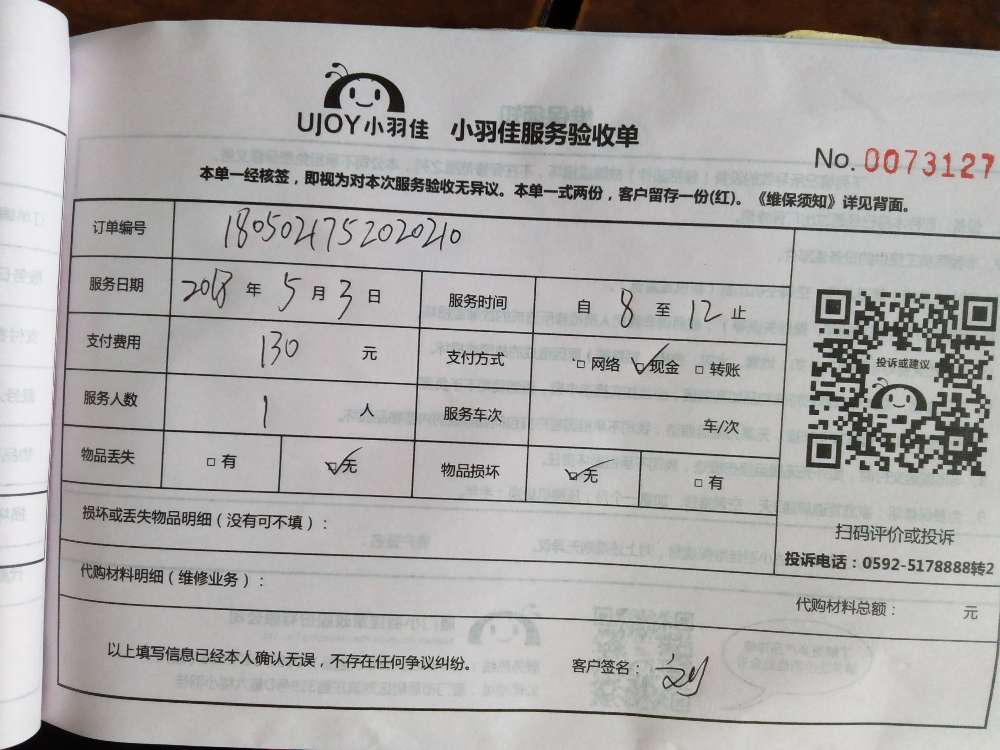 UJOY小羽佳 小羽佳服务验收单
No. 0073127
本单一经核签，即视为对本次服务验收无异议。本单一式两份，客户留存一份(红)。《维保须知》详见背面。
订单编号 1805021752020210
服务日期 2018 年 5 月 3 日 服务时间 自 8 至 12 止
支付费用 130 元 支付方式 □ 网络 ☑ 现金 □ 转账
服务人数 1 人 服务车次 车/次
物品丢失 □ 有 ☑ 无 物品损坏 ☑ 无 □ 有
投诉或建议
扫码评价或投诉
投诉电话：0592-5178888转2
损坏或丢失物品明细（没有可不填）：
代购材料明细（维修业务）：
代购材料总额： 元
以上填写信息已经本人确认无误，不存在任何争议纠纷。 客户签名：